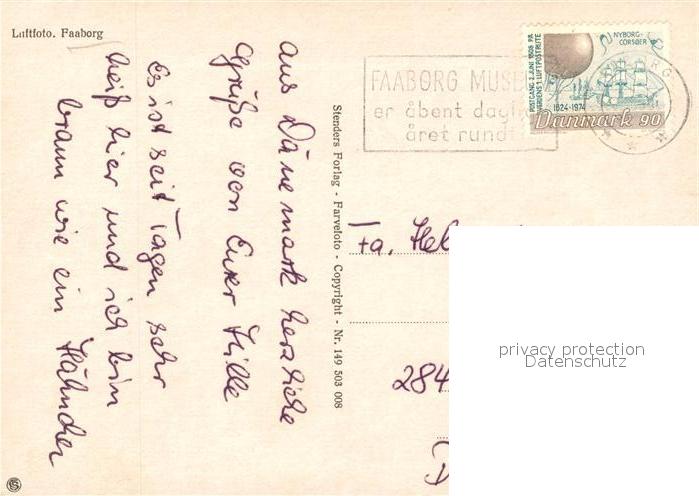 Luftfoto. Faaborg
aus Dänemark herzliche
Grüße von Eurer Hille
Es ist seit Tagen sehr
heiß hier und ich bin
braun wie ein Hähnchen
Stenders Forlag - Farvefoto - Copyright - Nr. 149 503 008
FAABORG MUSE
er åbent dagl
året rundt
POSTGANG 2. JUNI 1808 PR
VERDENS 1. LUFTPOSTRUTE
NYBORG-
CORSØER
1624-1974
Danmark 90
Fa. Hel
284
D
privacy protection
Datenschutz